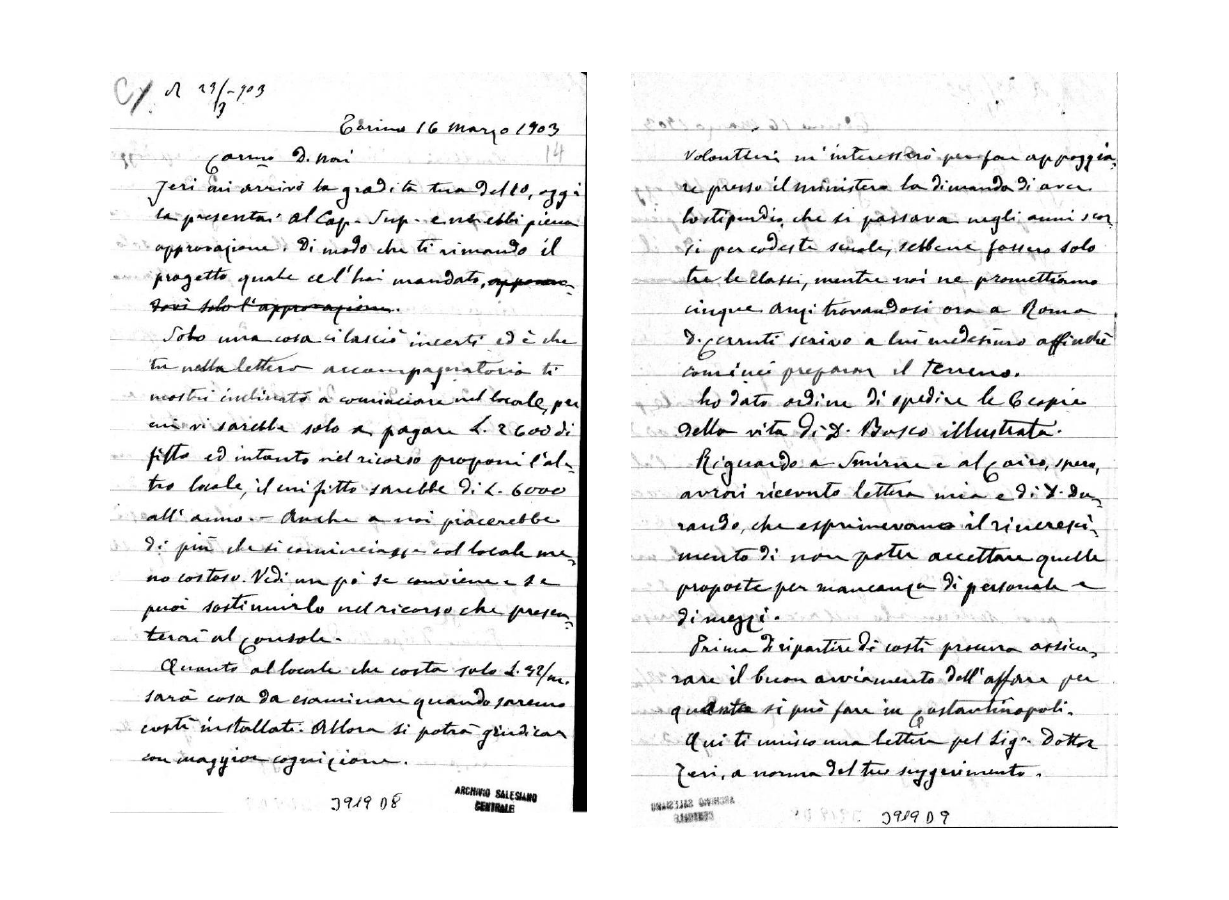 R 29/3-903
Torino 16 marzo 1903
14
Carmo D. Nai
Jeri mi arrivò la gradita tua del 10, oggi
la presentai al Cap. Sup. e ne ebbi piena
approvazione. Di modo che ti rimando il
progetto quale ce l'hai mandato, apponen-
dovi solo l'approvazione.
Solo una cosa ci lasciò incerti ed è che
tu nella lettera accompagnatoria ti
mostri inclinato a cominciare nel locale, per
cui vi sarebbe solo a pagare L. 2600 di
fitto ed intanto nel ricorso proponi l'al-
tro locale, il cui fitto sarebbe di L. 6000
all'anno. - Anche a noi piacerebbe
di più che si cominciasse col locale me-
no costoso. Vedi un pò se conviene e se
puoi sostituirlo nel ricorso che presen-
terai al Console.
Quanto al locale che costa solo L. 32/m.
sarà cosa da esaminare quando saremo
costì installati. Allora si potrà giudicar
con maggior cognizione.
J919 D8
ARCHIVIO SALESIANO
CENTRALE
Volontieri m'interesserò per far appoggia-
re presso il ministero la dimanda di aver
lo stipendio, che si passava negli anni scor-
si per codeste scuole, sebbene fossero solo
tre le classi, mentre noi ne promettiamo
cinque anzi trovandosi ora a Roma
D. Cerruti scrivo a lui medesimo affinchè
cominci preparar il terreno.
Ho dato ordine di spedire le 6 copie
della vita di D. Bosco illustrata.
Riguardo a Smirne e al Cairo, spero,
avrai ricevuto lettera mia e di D. Du-
rando, che esprimevano il rincresci-
mento di non poter accettare quelle
proposte per mancanza di personale e
di mezzi.
Prima di ripartire di costì procura assicu-
rare il buon avviamento dell'affare per
quanto si può fare in Costantinopoli.
Qui ti unisco una lettera pel Sigr Dottor
Zeri, a norma del tuo suggerimento.
J919 D9